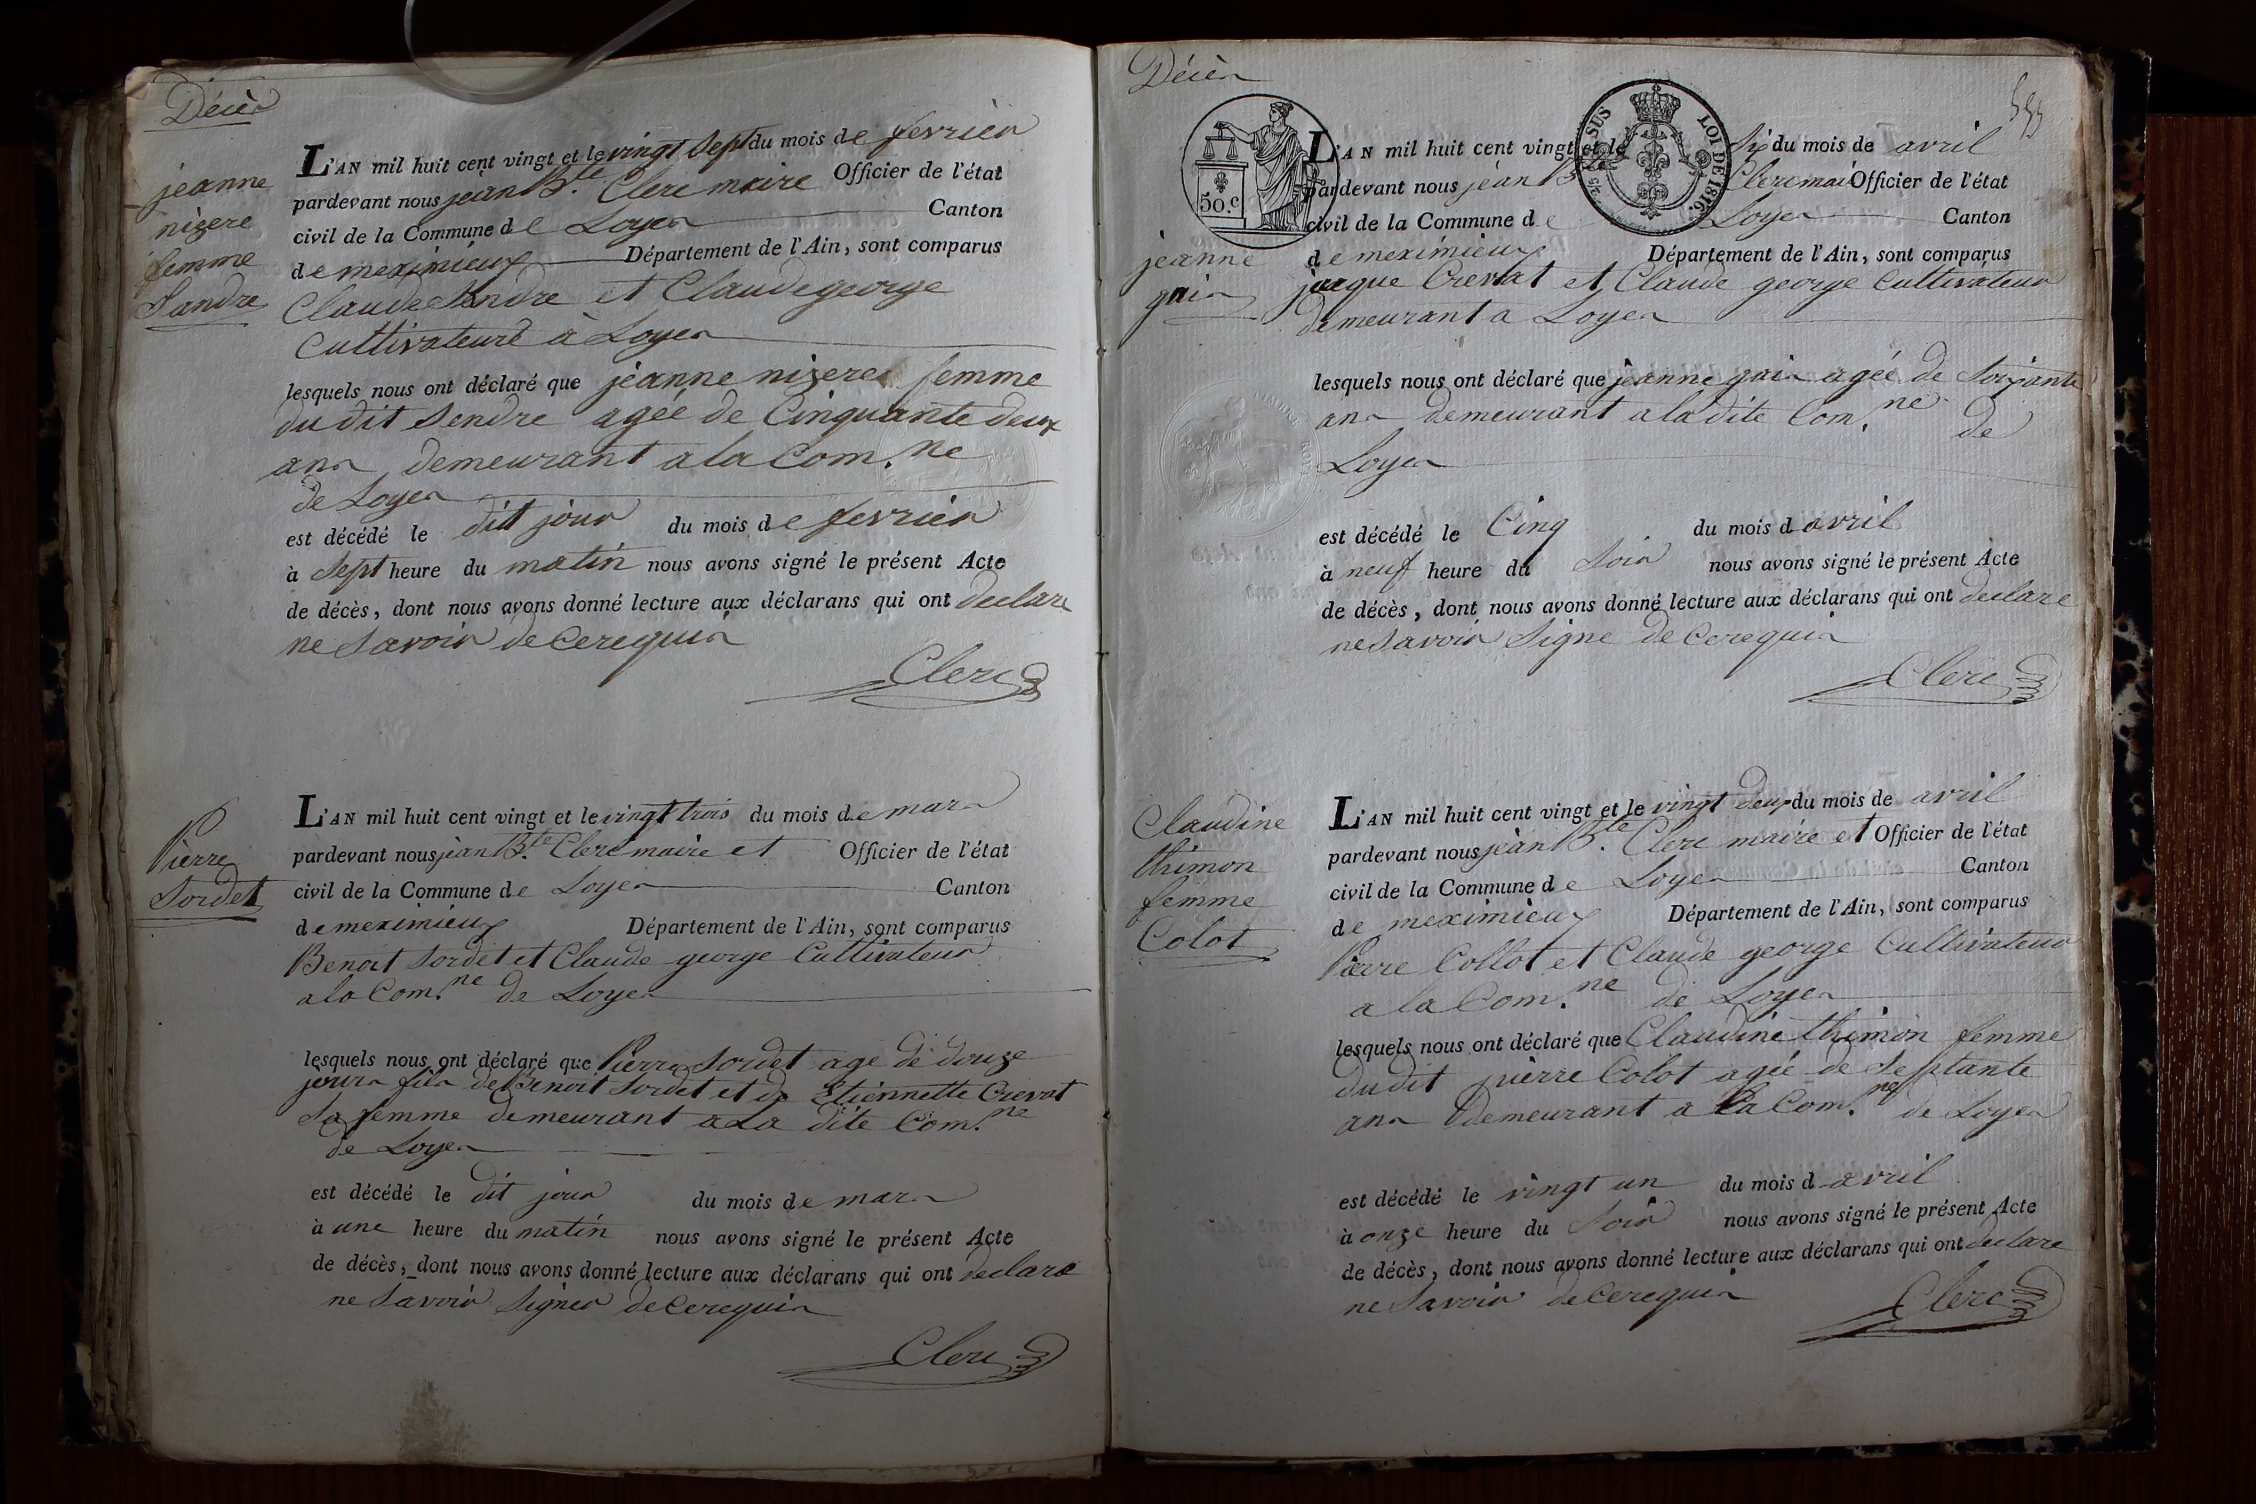 Décès
jeanne
nizere
femme
Sandre
L'AN mil huit cent vingt et le vingt Sept du mois de fevrier
pardevant nous jean Bte. Clerc maire Officier de l'état
civil de la Commune de Loyes Canton
de meximieux Département de l'Ain, sont comparus
Claude Sendre et Claude george
Cultivateurs à Loyes
lesquels nous ont déclaré que jeanne nizere femme
du dit Sendre agéé de Cinquante deux
ans demeurant a la Com.ne
de Loyes
est décédé le dit jour du mois de fevrier
à Sept heure du matin nous avons signé le présent Acte
de décès, dont nous avons donné lecture aux déclarans qui ont declare
ne Savoir de Cerequis
Clerc
Pierre
Sordet
L'AN mil huit cent vingt et le vingt trois du mois de mars
pardevant nous jean Bte. Clerc maire et Officier de l'état
civil de la Commune de Loyes Canton
de meximieux Département de l'Ain, sont comparus
Benoit Sordet et Claude george Cultivateur
a la Com.ne de Loyes
lesquels nous ont déclaré que Pierre Sordet age de douze
jours fils de Benoit Sordet et de Etiennette Crevat
Sa femme demeurant a La dite Com.ne
de Loyes
est décédé le dit jour du mois de mars
à une heure du matin nous avons signé le présent Acte
de décès, dont nous avons donné lecture aux déclarans qui ont declare
ne Savoir Signer de Cerequis
Clerc
Décès
50.c
SUS
LOI DE 1816.
jeanne
gais
L'AN mil huit cent vingt et le Six du mois de avril
pardevant nous jean B Clerc mair Officier de l'état
civil de la Commune de Loyes Canton
de meximieux Département de l'Ain, sont comparus
jacque Crevat et Claude george Cultivateur
demeurant a Loyes
lesquels nous ont déclaré que jeanne gais agéé de Soixante
ans demeurant a la dite Com.ne de
Loyes
est décédé le Cinq du mois d avril
à neuf heure du Soir nous avons signé le présent Acte
de décès, dont nous avons donné lecture aux déclarans qui ont declare
ne Savoir Signe de Cerequis
Clerc
Claudine
thimon
femme
Colot
L'AN mil huit cent vingt et le vingt deux du mois de avril
pardevant nous jean Bte. Clerc maire et Officier de l'état
civil de la Commune de Loyes Canton
de meximieux Département de l'Ain, sont comparus
Pierre Collot et Claude george Cultivateur
a la Com.ne de Loyes
lesquels nous ont déclaré que Claudine thimon femme
du dit pierre Colot agéé de Septante
ans demeurant a La Com.ne de Loyes
est décédé le vingt un du mois d avril
à onze heure du Soir nous avons signé le présent Acte
de décès, dont nous avons donné lecture aux déclarans qui ont declare
ne Savoir de Cerequis
Clerc